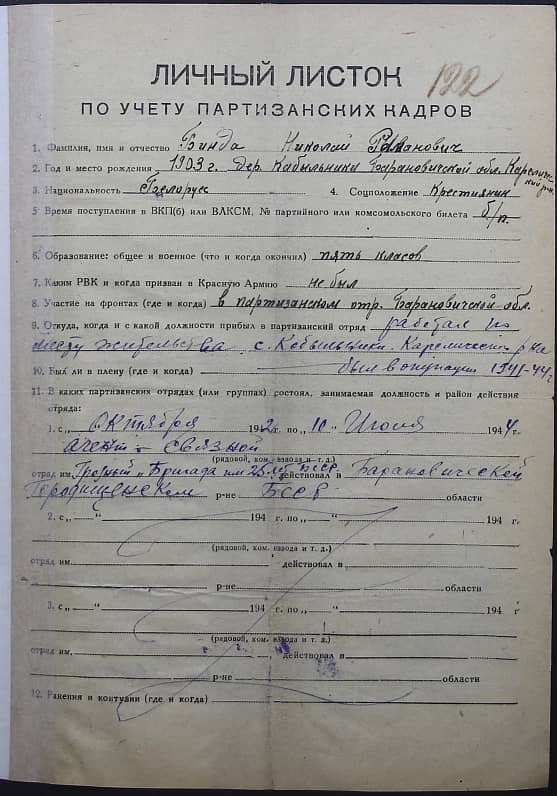 122
ЛИЧНЫЙ ЛИСТОК
ПО УЧЕТУ ПАРТИЗАНСКИХ КАДРОВ
1. Фамилия, имя и отчество Бинда Николай Романович
2. Год и место рождения 1903 г. Дер. Кабыльники Барановичской обл. Кареличский р-н
3. Национальность Белорусс 4. Соцположение Крестиянин
5. Время поступления в ВКП(б) или ВЛКСМ, № партийного или комсомольского билета б/п.
6. Образование: общее и военное (что и когда окончил) пять класов
7. Каким РВК и когда призван в Красную Армию не был
8. Участие на фронтах (где и когда) в партизанском отр. Барановичской обл.
9. Откуда, когда и с какой должности прибыл в партизанский отряд работал по
месту жительства с. Кобыльники Карелического р-на
10. Был ли в плену (где и когда) был в окупации 1941-44
11. В каких партизанских отрядах (или группах) состоял, занимаемая должность и район действия
отряда:
1. с „ Октября 1942 г по „10 Июля 1944 г.
агент-связной
(рядовой, ком. взвода и т. д.)
отряд им. Грозный Бригада им 25 лет БССР действовал в Барановической
Городищенском р-не БССР области
2. с „ “ 194 г по „ “ 194 г
(рядовой, ком. взвода и т. д.)
отряд им. действовал в
р-не области
3. с „ “ 194 г по „ “ 194 г
(рядовой, ком. взвода и т. д.)
отряд им. действовал в
р-не области
12. Ранения и контузии (где и когда)